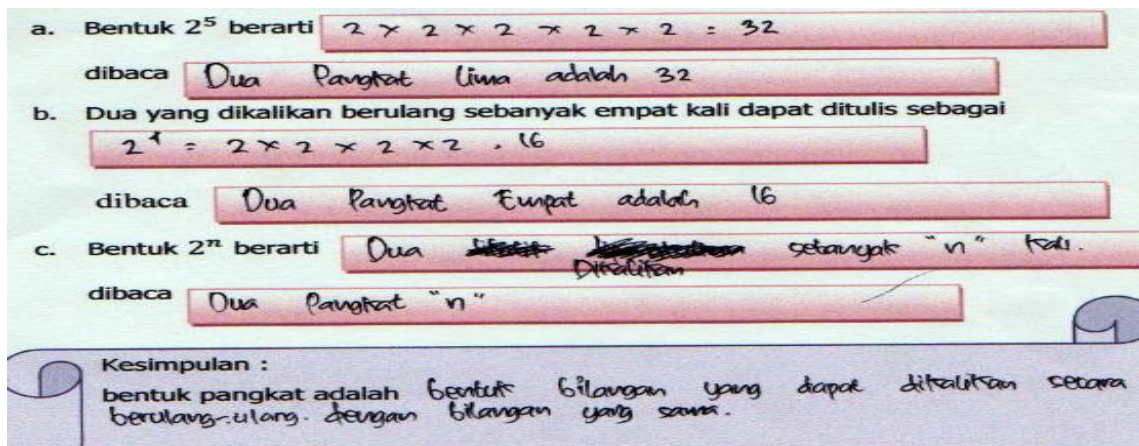 a. Bentuk 2⁵ berarti 2 × 2 × 2 × 2 × 2 = 32
dibaca Dua Pangkat lima adalah 32
b. Dua yang dikalikan berulang sebanyak empat kali dapat ditulis sebagai
2⁴ = 2 × 2 × 2 × 2 = 16
dibaca Dua Pangkat Empat adalah 16
c. Bentuk 2ⁿ berarti Dua Dikalikan sebanyak "n" kali.
dibaca Dua Pangkat "n"
Kesimpulan :
bentuk pangkat adalah bentuk bilangan yang dapat dikalikan secara
berulang-ulang. dengan bilangan yang sama.